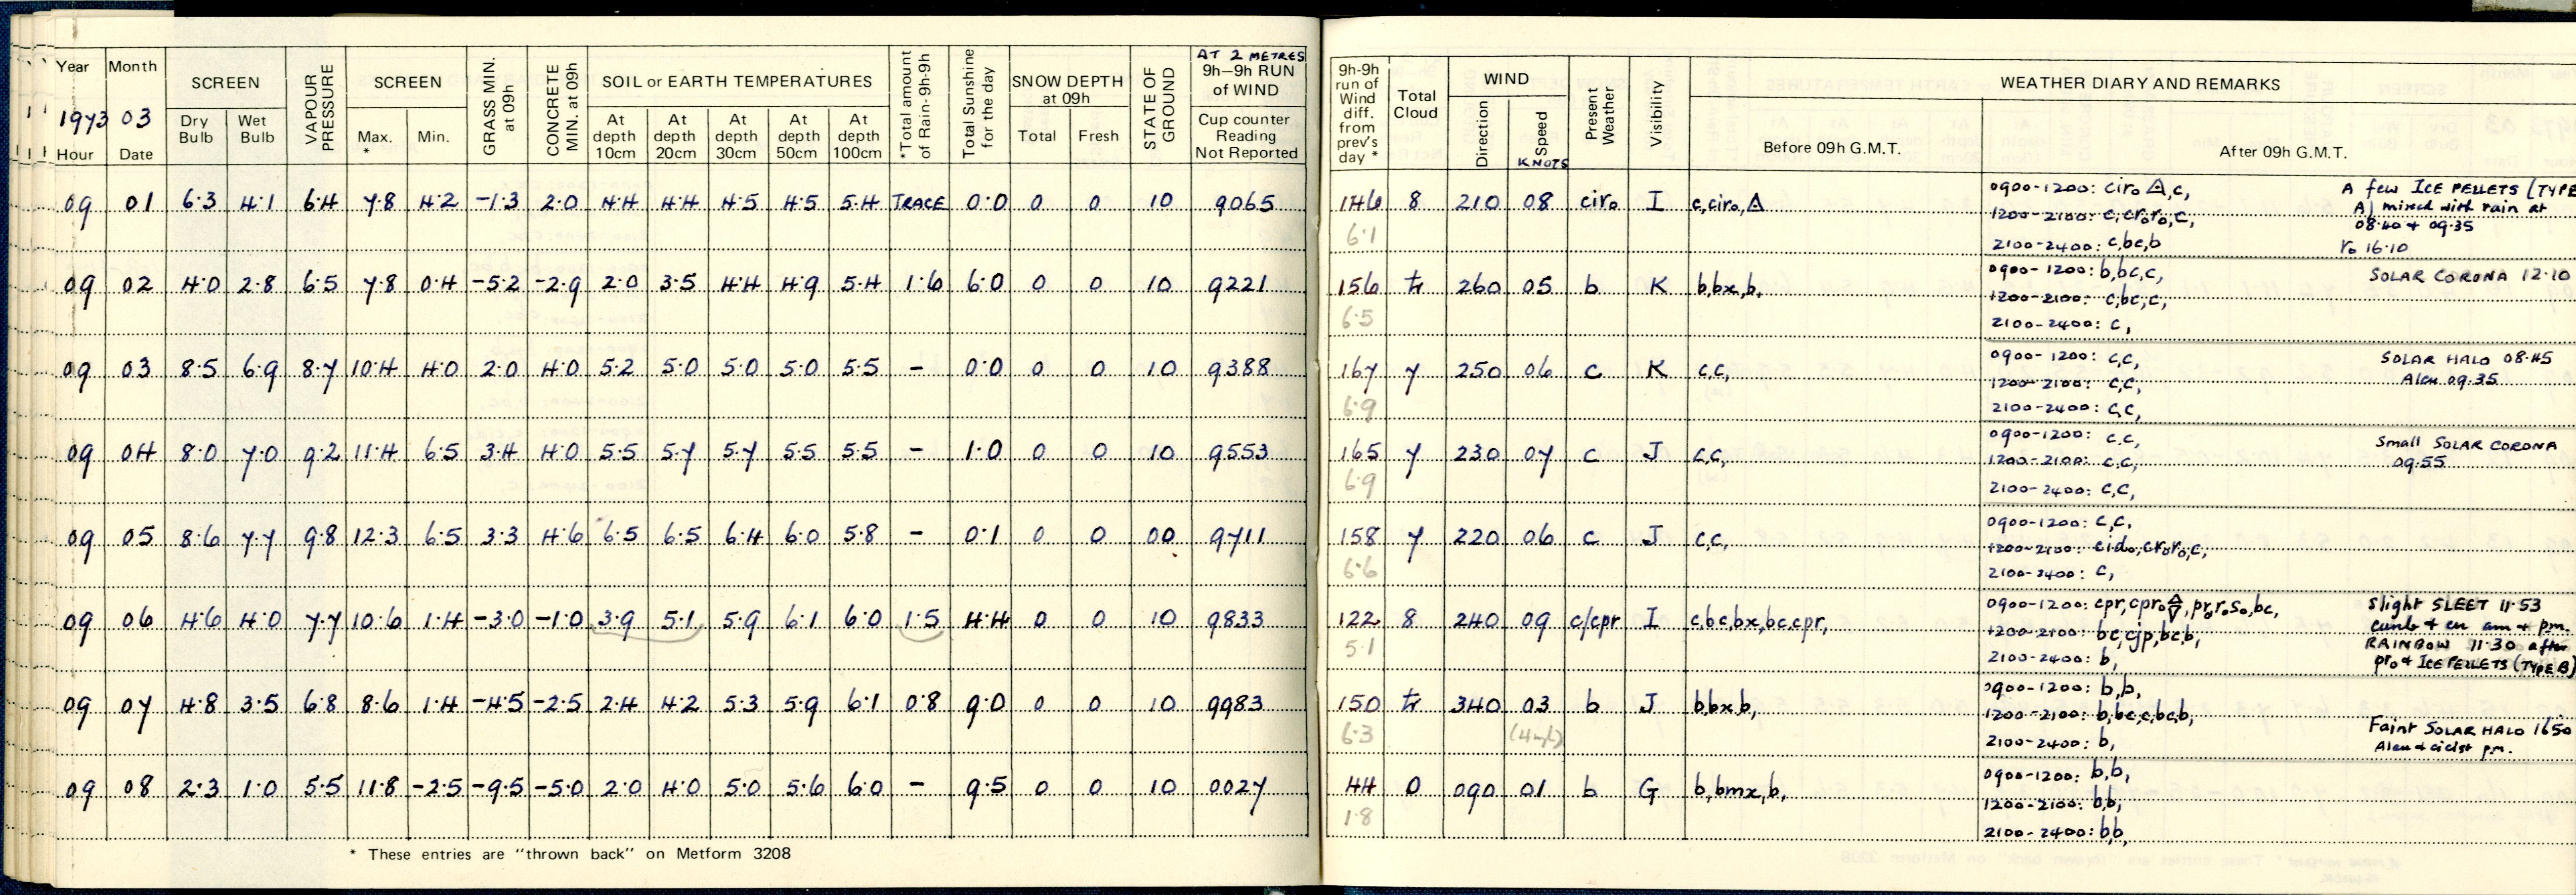 Year Month SCREEN VAPOUR PRESSURE SCREEN GRASS MIN. at 09h CONCRETE MIN. at 09h SOIL or EARTH TEMPERATURES *Total amount of Rain-9h-9h Total Sunshine for the day SNOW DEPTH at 09h STATE OF GROUND AT 2 METRES 9h-9h RUN of WIND
1973 03 Dry Bulb Wet Bulb Max. * Min. At depth 10cm At depth 20cm At depth 30cm At depth 50cm At depth 100cm Total Fresh Cup counter Reading Not Reported
Hour Date
09 01 6.3 4.1 6.4 7.8 4.2 -1.3 2.0 4.4 4.4 4.5 4.5 5.4 TRACE 0.0 0 0 10 9065
09 02 4.0 2.8 6.5 7.8 0.4 -5.2 -2.9 2.0 3.5 4.4 4.9 5.4 1.6 6.0 0 0 10 9221
09 03 8.5 6.9 8.7 10.4 4.0 2.0 4.0 5.2 5.0 5.0 5.0 5.5 - 0.0 0 0 10 9388
09 04 8.0 7.0 9.2 11.4 6.5 3.4 4.0 5.5 5.7 5.7 5.5 5.5 - 1.0 0 0 10 9553
09 05 8.6 7.7 9.8 12.3 6.5 3.3 4.6 6.5 6.5 6.4 6.0 5.8 - 0.1 0 0 00 9711
09 06 4.6 4.0 7.7 10.6 1.4 -3.0 -1.0 3.9 5.1 5.9 6.1 6.0 1.5 4.4 0 0 10 9833
09 07 4.8 3.5 6.8 8.6 1.4 -4.5 -2.5 2.4 4.2 5.3 5.9 6.1 0.8 9.0 0 0 10 9983
09 08 2.3 1.0 5.5 11.8 -2.5 -9.5 -5.0 2.0 4.0 5.0 5.6 6.0 - 9.5 0 0 10 0027
* These entries are "thrown back" on Metform 3208
9h-9h run of Wind diff. from prev's day * Total Cloud WIND Direction Speed KNOTS Present Weather Visibility WEATHER DIARY AND REMARKS
Before 09h G.M.T. After 09h G.M.T.
146 8 210 08 ciro I c,ciro,△
6.1
0900-1200: ciro △,c,
1200-2100: c,croro,c,
2100-2400: c,bc,b
A few ICE PELLETS (TYPE
A) mixed with rain at
08.40 + 09.35
ro 16.10
156 tr 260 05 b K b,bx,b,
6.5
0900-1200: b,bc,c,
1200-2100: c,bc,c,
2100-2400: c,
SOLAR CORONA 12.10
167 7 250 06 c K c,c,
6.9
0900-1200: c,c,
1200-2100: c,c,
2100-2400: c,c,
SOLAR HALO 08.45
Alcu 09.35
165 7 230 07 c J c,c,
6.9
0900-1200: c,c,
1200-2100: c,c,
2100-2400: c,c,
Small SOLAR CORONA
09.55
158 7 220 06 c J c,c,
6.6
0900-1200: c,c,
1200-2100: cido,croro,c,
2100-2400: c,
122 8 240 09 c/cpr I c,bc,bx,bc,cpr,
5.1
0900-1200: cpr,cpro,proroso,bc,
1200-2100: bc,cjp,bc,b,
2100-2400: b,
Slight SLEET 11.53
cunb + cu am + pm.
RAINBOW 11.30 after
pro + ICE PELLETS (TYPE B)
150 tr 340 03 b J b,bx,b,
6.3
0900-1200: b,b,
1200-2100: b,bc,c,bc,b,
2100-2400: b,
Faint SOLAR HALO 1650
Alcu + cicist pm.
44 0 090 01 b G b,bmx,b,
1.8
0900-1200: b,b,
1200-2100: b,b,
2100-2400: b,b,